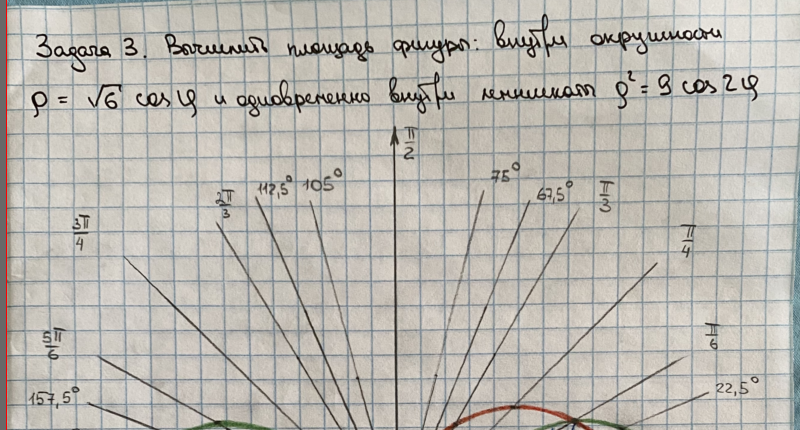 Задача 3. Вычислить площадь фигуры: внутри окружности
ρ = √6 cos φ и одновременно внутри лемнискаты ρ² = 9 cos 2φ
π/2
105°
75°
112,5°
67,5°
2π/3
π/3
3π/4
π/4
5π/6
π/6
157,5°
22,5°